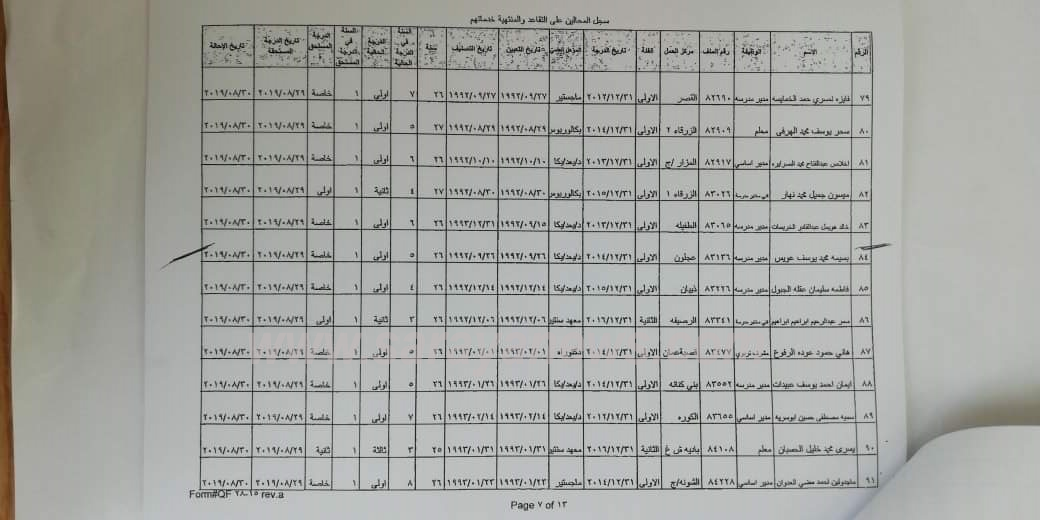 سجل المحالين على التقاعد والمنتهية خدماتهم
الرقم الاسم الوظيفة رقم الملف مركز العمل الفئة تاريخ الدرجة المؤهل العلمي تاريخ التعيين تاريخ التصنيف سنة السنة في الدرجة الحالية الدرجة الحالية السنة في الدرجة المستحق الدرجة المستحق تاريخ الدرجة المستحقة تاريخ الإحالة
٧٩ فايزه نصري حمد الخمايسه مدير مدرسه ٨٢٦٩٠ القصر الاولى ٢٠١٢/١٢/٣١ ماجستير ١٩٩٢/٠٩/٢٧ ١٩٩٢/٠٩/٢٧ ٢٦ ٧ اولى ١ خاصة ٢٠١٩/٠٨/٢٩ ٢٠١٩/٠٨/٣٠
٨٠ سحر يوسف محمد الهرفي معلم ٨٢٩٠٩ الزرقاء ٢ الاولى ٢٠١٤/١٢/٣١ بكالوريوس ١٩٩٢/٠٨/٢٩ ١٩٩٢/٠٨/٢٩ ٢٧ ٥ اولى ١ خاصة ٢٠١٩/٠٨/٢٩ ٢٠١٩/٠٨/٣٠
٨١ اخلاص عبدالفتاح محمد الصرايره مدير اساسي ٨٢٩١٧ المزار /ج الاولى ٢٠١٣/١٢/٣١ د/بعد/بكا ١٩٩٢/١٠/١٠ ١٩٩٢/١٠/١٠ ٢٦ ٦ اولى ١ خاصة ٢٠١٩/٠٨/٢٩ ٢٠١٩/٠٨/٣٠
٨٢ ميسون جميل محمد نهار ٨٣٠٢٦ الزرقاء ١ الاولى ٢٠١٥/١٢/٣١ بكالوريوس ١٩٩٢/٠٨/٣٠ ١٩٩٢/٠٨/٣٠ ٢٧ ٤ ثانية ١ اولى ٢٠١٩/٠٨/٢٩ ٢٠١٩/٠٨/٣٠
٨٣ خالد هويمل عبدالقادر الخريسات مدير مدرسه ٨٣٠٦٥ الطفيله الاولى ٢٠١٣/١٢/٣١ د/بعد/بكا ١٩٩٢/٠٩/١٥ ١٩٩٣/١٢/٣١ ٢٦ ٦ اولى ١ خاصة ٢٠١٩/٠٨/٢٩ ٢٠١٩/٠٨/٣٠
٨٤ بسيمه محمد يوسف عويس مدير مدرسه ٨٣١٣٦ عجلون الاولى ٢٠١٤/١٢/٣١ د/بعد/بكا ١٩٩٢/٠٩/٢٦ ١٩٩٢/٠٩/٢٦ ٢٦ ٥ اولى ١ خاصة ٢٠١٩/٠٨/٢٩ ٢٠١٩/٠٨/٣٠
٨٥ فاطمه سليمان عقله الجبول مدير مدرسه ٨٣٢٢٦ ذيبان الاولى ٢٠١٥/١٢/٣١ د/بعد/بكا ١٩٩٢/١٢/١٤ ١٩٩٢/١٢/١٤ ٢٦ ٤ اولى ١ خاصة ٢٠١٩/٠٨/٢٩ ٢٠١٩/٠٨/٣٠
٨٦ سمر عبدالرحيم ابراهيم ابراهيم ٨٣٣٤١ الرصيفه الثانية ٢٠١٦/١٢/٣١ معهد سنتير ١٩٩٢/١٢/٠٦ ١٩٩٢/١٢/٠٦ ٢٦ ٣ ثانية ١ اولى ٢٠١٩/٠٨/٢٩ ٢٠١٩/٠٨/٣٠
٨٧ هاني حمود عوده الرفوع مشرف تربوي ٨٣٤٧٧ قصبةعمان الاولى ٢٠١٤/١٢/٣١ دكتوراه ١٩٩٣/٠٢/٠١ ١٩٩٣/٠٢/٠١ ٢٦ ٥ اولى ١ خاصة ٢٠١٩/٠٨/٢٩ ٢٠١٩/٠٨/٣٠
٨٨ ايمان احمد يوسف عبيدات مدير مدرسه ٨٣٥٥٢ بني كنانه الاولى ٢٠١٤/١٢/٣١ د/بعد/بكا ١٩٩٣/٠١/٢٦ ١٩٩٣/٠١/٢٦ ٢٦ ٥ اولى ١ خاصة ٢٠١٩/٠٨/٢٩ ٢٠١٩/٠٨/٣٠
٨٩ سميه مصطفى حسين ابوسريه مدير اساسي ٨٣٦٥٥ الكوره الاولى ٢٠١٢/١٢/٣١ د/بعد/بكا ١٩٩٣/٠٢/١٤ ١٩٩٣/٠٢/١٤ ٢٦ ٧ اولى ١ خاصة ٢٠١٩/٠٨/٢٩ ٢٠١٩/٠٨/٣٠
٩٠ يسرى محمد خليل الحصبان معلم ٨٤١٠٨ باديه ش غ الثانية ٢٠١٦/١٢/٣١ معهد سنتير ١٩٩٣/٠١/٣١ ١٩٩٣/٠١/٣١ ٢٥ ٣ ثالثة ١ ثانية ٢٠١٩/٠٨/٢٩ ٢٠١٩/٠٨/٣٠
٩١ ماجدولين احمد مضي العدوان مدير اساسي ٨٤٢٢٨ الشونه/ج الاولى ٢٠١٤/١٢/٣١ ماجستير ١٩٩٣/٠١/٢٣ ١٩٩٣/٠١/٢٣ ٢٦ ٨ اولى ١ خاصة ٢٠١٩/٠٨/٢٩ ٢٠١٩/٠٨/٣٠
Form#QF ٧٨-١٥ rev.a
Page ٧ of ١٣